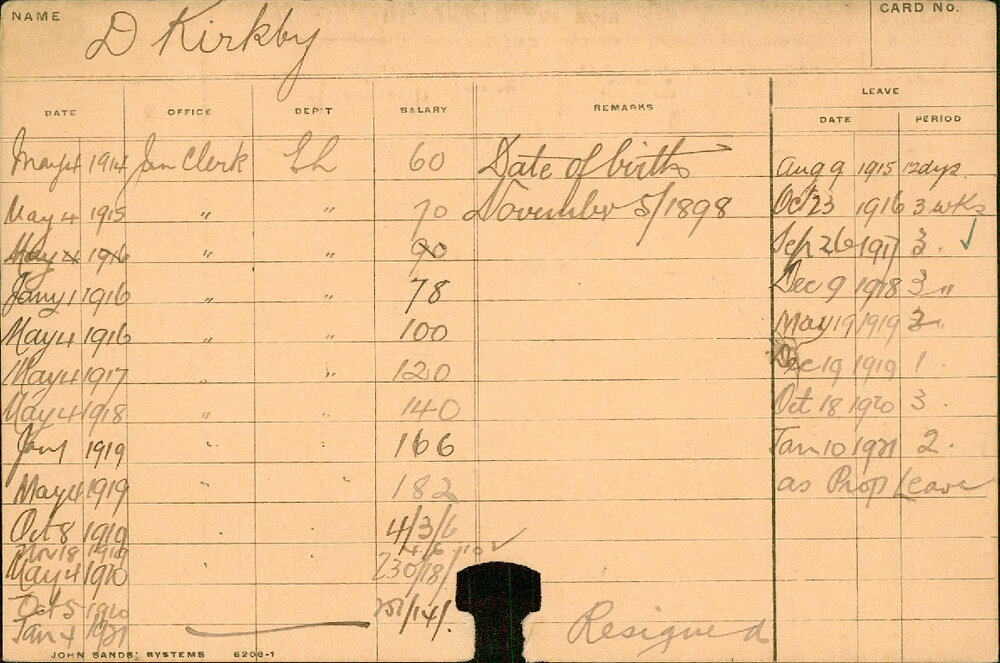 NAME D Kirkby CARD No.
LEAVE
DATE OFFICE DEP'T SALARY REMARKS DATE PERIOD
May 4 1914 Jun Clerk 60 Date of birth Aug 9 1915 12 dys.
May 4 1915 " " 70 November 5/1898 Oct 23 1916 3 wks
May 4 1916 " " 90 Sep 26 1917 3 . ✓
Jany 1 1916 " " 78 Dec 9 1918 3 "
May 4 1916 " " 100 May 19 1919 2 .
May 4 1917 " " 120 Dec 19 1919 1 .
May 4 1918 " " 140 Oct 18 1920 3 .
Jan 1 1919 " " 166 Jan 10 1921 2 .
May 4 1919 " " 182 as Prop Leave
Oct 8 1919 " " 4/3/6
Nov 18 1919 4/6/10 ✓
May 4 1920 " " 230/18/
Oct 5 1920 /14/.
Jan 4 1921 Resigned
JOHN SANDS' SYSTEMS 6206-1